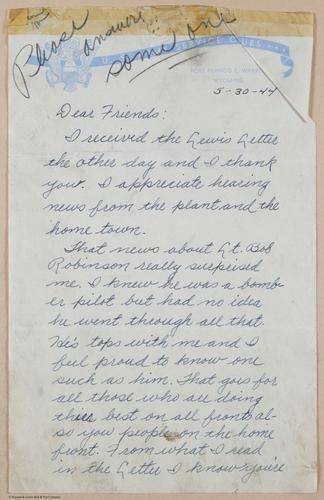 Please answer
some one
SERVICE CLUBS
FORT FRANCIS E. WARREN
WYOMING
5-30-44
Dear Friends:
I received the Lewis Letter
the other day and I thank
you. I appreciate hearing
news from the plant and the
home town.
That news about Lt. Bob
Robinson really surprised
me. I knew he was a bomb-
er pilot but had no idea
he went through all that.
He's tops with me and I
feel proud to know one
such as him. That goes for
all those who are doing
their best on all fronts al-
so you people on the home
front. From what I read
in the Letter I know you're